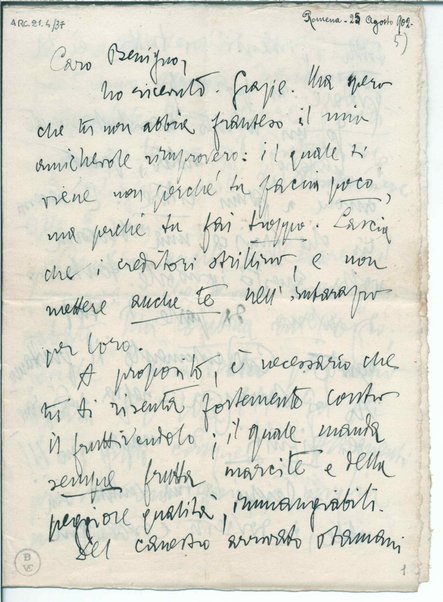 ARC.21.4/37
Romena - 25 Agosto 902.
5)
Caro Benigno,
ho ricevuto. Grazie. Ma spero
che tu non abbia franteso il mio
amichevole rimprovero: il quale ti
viene non perché tu faccia poco,
ma perché tu fai troppo. Lascia
che i creditori strillino, e non
mettere anche te nell'
per loro.
A proposito; è necessario che
tu ti risenta fortemente contro
il fruttivendolo; il quale manda
sempre frutta marcite e della
peggiore qualità, immangiabili.
Del canestro arrivato stamani
B
VS
1